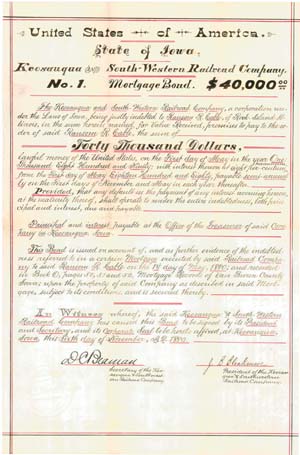 United States of America.
State of Iowa,
Keosauqua and South-Western Railroad Company.
No. 1. Mortgage Bond. $40,000
The Keosauqua and South Western Railroad Company, a corporation under
the Laws of Iowa, being justly indebted to Ransom R. Cable, of Rock Island Il-
linois, in the sum herein named, for Value Received, promises to pay to the or-
der of said Ransom R. Cable, the sum of
Forty Thousand Dollars,
Lawful money of the United States, on the First day of May in the year One
Thousand Eight Hundred and Ninety, with interest thereon at eight per centum,
from the First day of May Eighteen Hundred and Eighty, payable semi-annual-
ly on the first days of November and May in each year thereafter.
Provided, that any default in the payment of any interest accruing hereon,
at the maturity thereof, shall operate to render the entire indebtedness, both prin-
cipal and interest, due and payable.
Principal and interest payable at the Office of the Treasurer of said Com-
pany in Keosauqua Iowa.
This Bond is issued on account of, and as further evidence of the indebted-
ness referred to in a certain Mortgage executed by said Railroad Compa-
ny to said Ransom R. Cable on the day of May, 1880, and recorded
in Book page of Mortgage Record of Van Buren County
Iowa; upon the property of said Company as described in said Mort-
gage, subject to its conditions, and is secured thereby.
In Witness whereof, the said Keosauqua & South Western
Railroad Company has caused this Bond to be signed by its President
and Secretary, and its Corporate Seal to be hereto affixed, at Keosauqua,
Iowa, this sixth day of December, A.D. 1880.
Secretary of the Keo-
sauqua & Southwest-
ern Railroad Company.
President of the Keosau-
qua & Southwestern
Railroad Company.